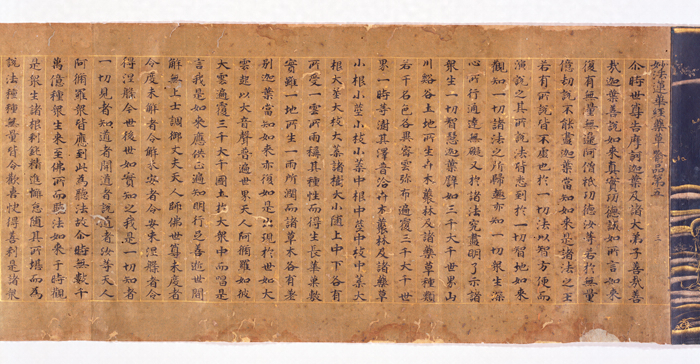 妙法蓮華經藥草喻品第五
尒時世尊告摩訶迦葉及諸大弟子善哉善
哉迦葉善說如來真實功德誠如所言如來
復有無量無邊阿僧祇功德汝等若於無量
億劫說不能盡迦葉當知如來是諸法之王
若有所說皆不虛也於一切法以智方便而
演說之其所說法皆悉到於一切智地如來
觀知一切諸法之所歸趣亦知一切眾生深
心所行通達無礙又於諸法究盡明了示諸
眾生一切智慧迦葉譬如三千大千世界山
川谿谷土地所生卉木叢林及諸藥草種類
若干名色各異密雲弥布遍覆三千大千世
界一時等澍其澤普洽卉木叢林及諸藥草
小根小莖小枝小葉中根中莖中枝中葉大
根大莖大枝大葉諸樹大小隨上中下各有
所受一雲所雨稱其種性而得生長華菓敷
實雖一地所生一雨所潤而諸草木各有差
別迦葉當知如來亦復如是出現於世如大
雲起以大音聲普遍世界天人阿脩羅如彼
大雲遍覆三千大千國土於大眾中而唱是
言我是如來應供正遍知明行足善逝世間
解無上士調御丈夫天人師佛世尊未度者
令度未解者令解未安者令安未涅槃者令
得涅槃今世後世如實知之我是一切知者
一切見者知道者開道者說道者汝等天人
阿脩羅眾皆應到此為聽法故尒時無數千
萬億種眾生來至佛所而聽法如來于時觀
是眾生諸根利鈍精進懈怠隨其所堪而為
說法種種無量皆令歡喜快得善利是諸眾